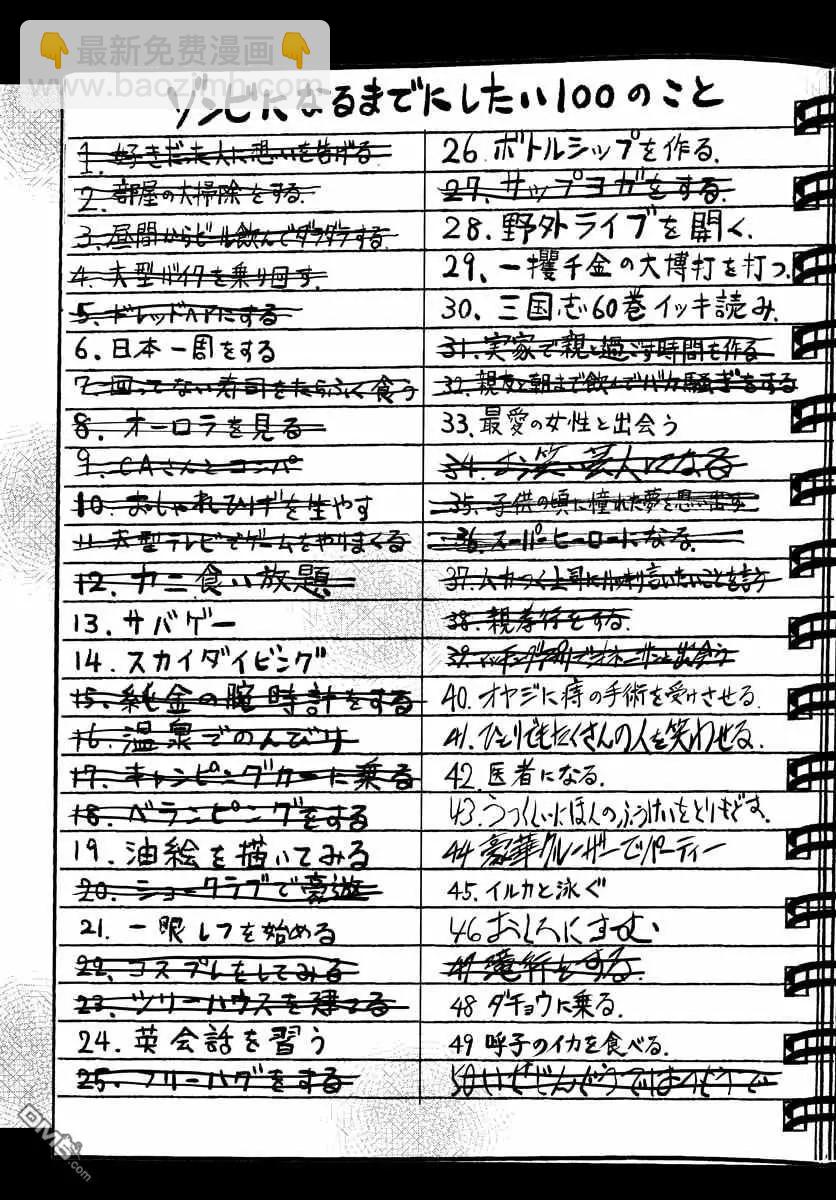 👇最新免费漫画👇
www.baozimh.com
ゾンビになるまでにしたい100のこと
1. 好きだった人に想いを告げる
2. 部屋の大掃除をする.
3. 昼間からビール飲んでダラダラする
4. 大型バイクを乗り回す.
5. ドレッドヘアにする
6. 日本一周をする
7. 回ってない寿司をたらふく食う
8. オーロラを見る
9. CAさんとコンパ
10. おしゃれひげを生やす
11. 大型テレビでゲームをやりまくる
12. カニ食い放題
13. サバゲー
14. スカイダイビング
15. 純金の腕時計をする
16. 温泉でのんびり
17. キャンピングカーに乗る
18. ベランピングをする
19. 油絵を描いてみる
20. ショークラブで豪遊
21. 一眼レフを始める
22. コスプレをしてみる
23. ツリーハウスを建てる
24. 英会話を習う
25. フリーハグをする
26. ボトルシップを作る.
27. サップヨガをする.
28. 野外ライブを開く.
29. 一攫千金の大博打を打つ.
30. 三国志60巻イッキ読み.
31. 実家で親と過ごす時間を作る
32. 親友と朝まで飲んでバカ騒ぎをする
33. 最愛の女性と出会う
34. お笑い芸人になる
35. 子供の頃に憧れた夢を思い出す
36. スーパーヒーローになる.
37. ムカつく上司にハッキリ言いたいことを言う
38. 親孝行をする.
39. で出会う
40. オヤジに痔の手術を受けさせる.
41. ひとりでもたくさんの人を笑わせる.
42. 医者になる.
43. うつくしいにほんのふうけいをとりもどす.
44 豪華クルーザーでパーティー
45. イルカと泳ぐ
46 おしろにすむ
47 滝行をする.
48 ダチョウに乗る.
49 呼子のイカを食べる.
50